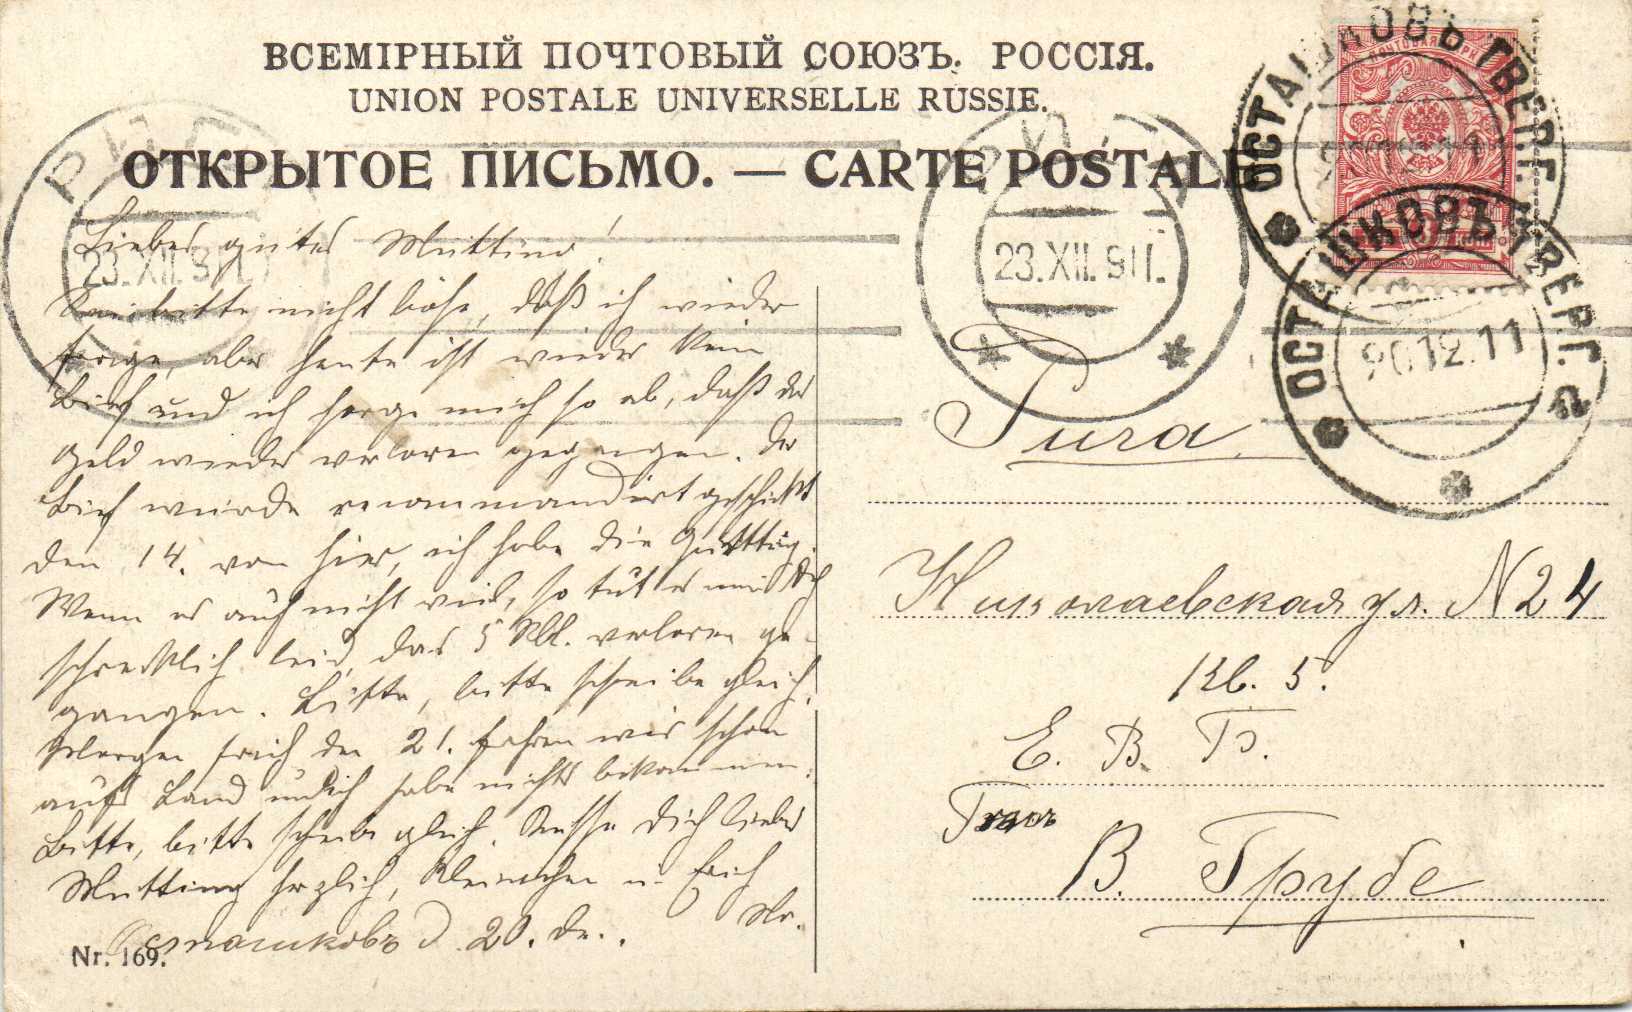 ВСЕМІРНЫЙ ПОЧТОВЫЙ СОЮЗЪ. РОССІЯ.
UNION POSTALE UNIVERSELLE RUSSIE.
ОТКРЫТОЕ ПИСЬМО. — CARTE POSTALE
ОСТАШКОВЪ ТВЕР.Г.
РИГА
23.XII.911.
РИГА
23.XII.911.
ОСТАШКОВЪ ТВЕР.Г.
20 12.11
Liebes gutes Mutting!
Sei bitte nicht böse, daß ich wieder
frage, aber heute ist wieder kein
Brief und ich sorge mich so ab, daß das
Geld wieder verloren gegangen. Der
Brief wurde recommandirt geschickt
den 14. von hier, ich habe die Quittung.
Wenn es auch nicht viel, so tut es mir doch
schrecklich leid, das 5 Rbl. verloren ge-
gangen. Bitte, bitte schreibe gleich.
Morgen früh den 21. fahren wir schon
aufs Land und ich habe nichts bekommen.
Bitte, bitte schreibe gleich. Küsse Dich liebes
Mutting herzlich, Kleinchen u. Erich
Осташковъ д. 20. Dez.
Nr. 169.
Рига
Николаевская ул. N 24
Кв. 5.
Е. В. Б.
В. Грубе